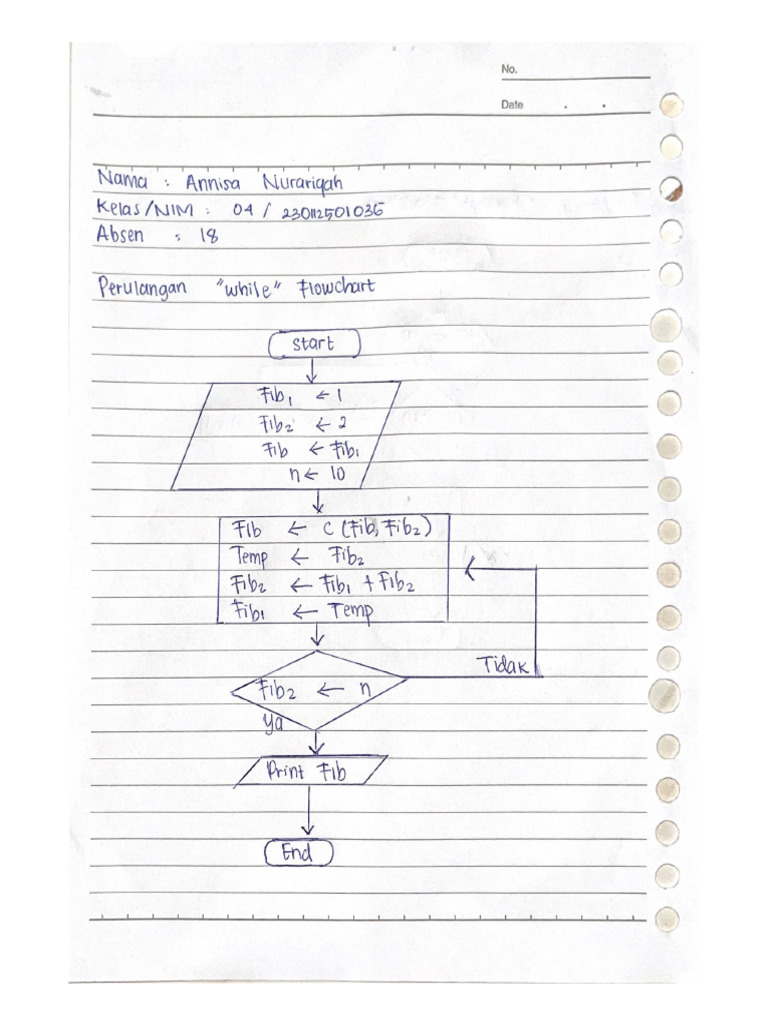 No.
Date
Nama : Annisa Nurariqah
Kelas/NIM : 04 / 230112501036
Absen : 18
Perulangan "while" Flowchart
Start
Fib₁ ← 1
Fib₂ ← 2
Fib ← Fib₁
n ← 10
Fib ← c (Fib, Fib₂)
Temp ← Fib₂
Fib₂ ← Fib₁ + Fib₂
Fib₁ ← Temp
Tidak
Fib₂ ← n
ya
Print Fib
End